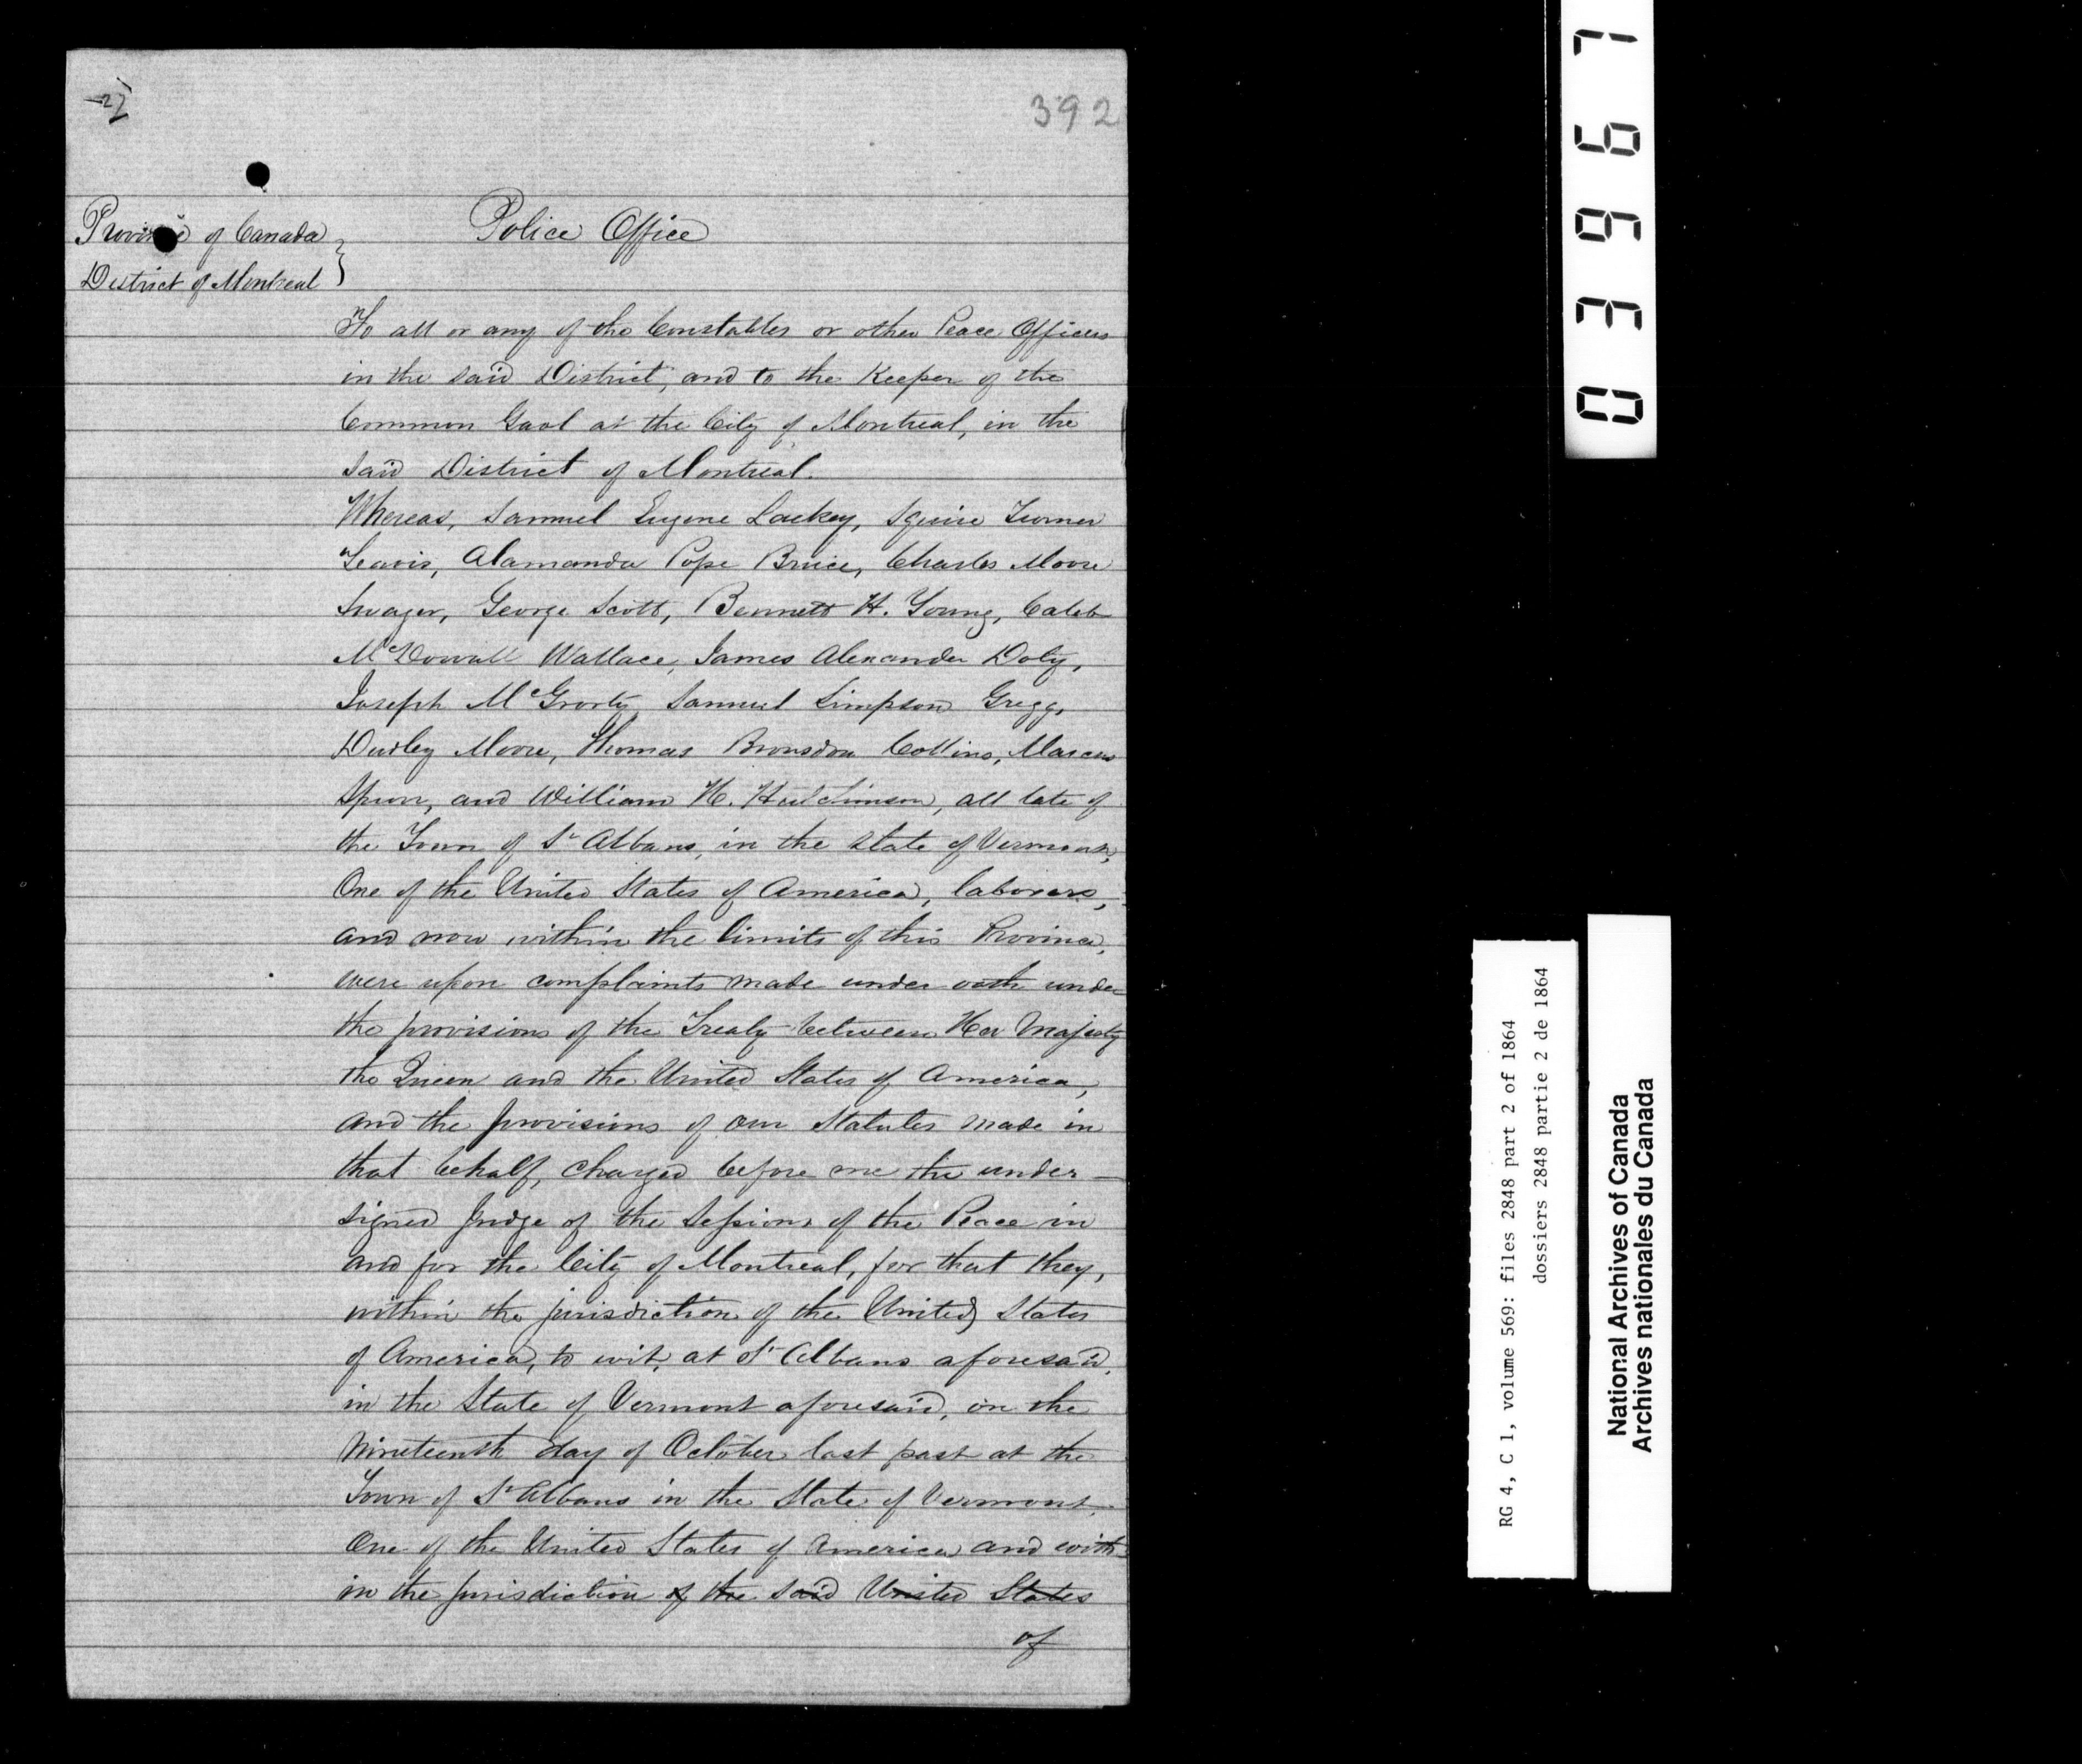 392
Police Office
Province of Canada
District of Montreal }
To all or any of the Constables or other Peace Officers
in the said District, and to the Keeper of the
Common Gaol at the City of Montreal, in the
said District of Montreal.
Whereas, Samuel Eugene Lackey, Squire Turner
Teavis, Alamanda Pope Bruce, Charles Moore
Swager, George Scott, Bennett H. Young, Caleb
McDowall Wallace, James Alexander Doty,
Joseph McGrorty, Samuel Simpson Gregg,
Dudley Moore, Thomas Bronsdon Collins, Marcus
Spurr, and William H. Hutchinson, all late of
the Town of St Albans, in the State of Vermont,
One of the United States of America, laborers,
and now within the limits of this Province,
were upon complaints made under oath under
the provisions of the Treaty between Her Majesty
the Queen and the United States of America,
and the provisions of our Statutes made in
that behalf, charged before me the under-
signed Judge of the Sessions of the Peace in
and for the City of Montreal, for that they,
within the jurisdiction of the United States
of America, to wit, at St Albans aforesaid,
in the State of Vermont aforesaid, on the
Nineteenth day of October last past at the
Town of St Albans in the State of Vermont,
One of the United States of America and with-
in the Jurisdiction of the said United States
of
03967
RG 4, C 1, volume 569: files 2848 part 2 of 1864
dossiers 2848 partie 2 de 1864
National Archives of Canada
Archives nationales du Canada